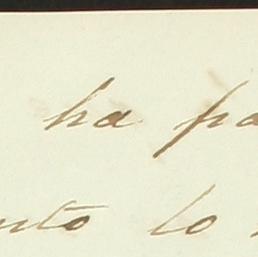 ha pa
nto lo